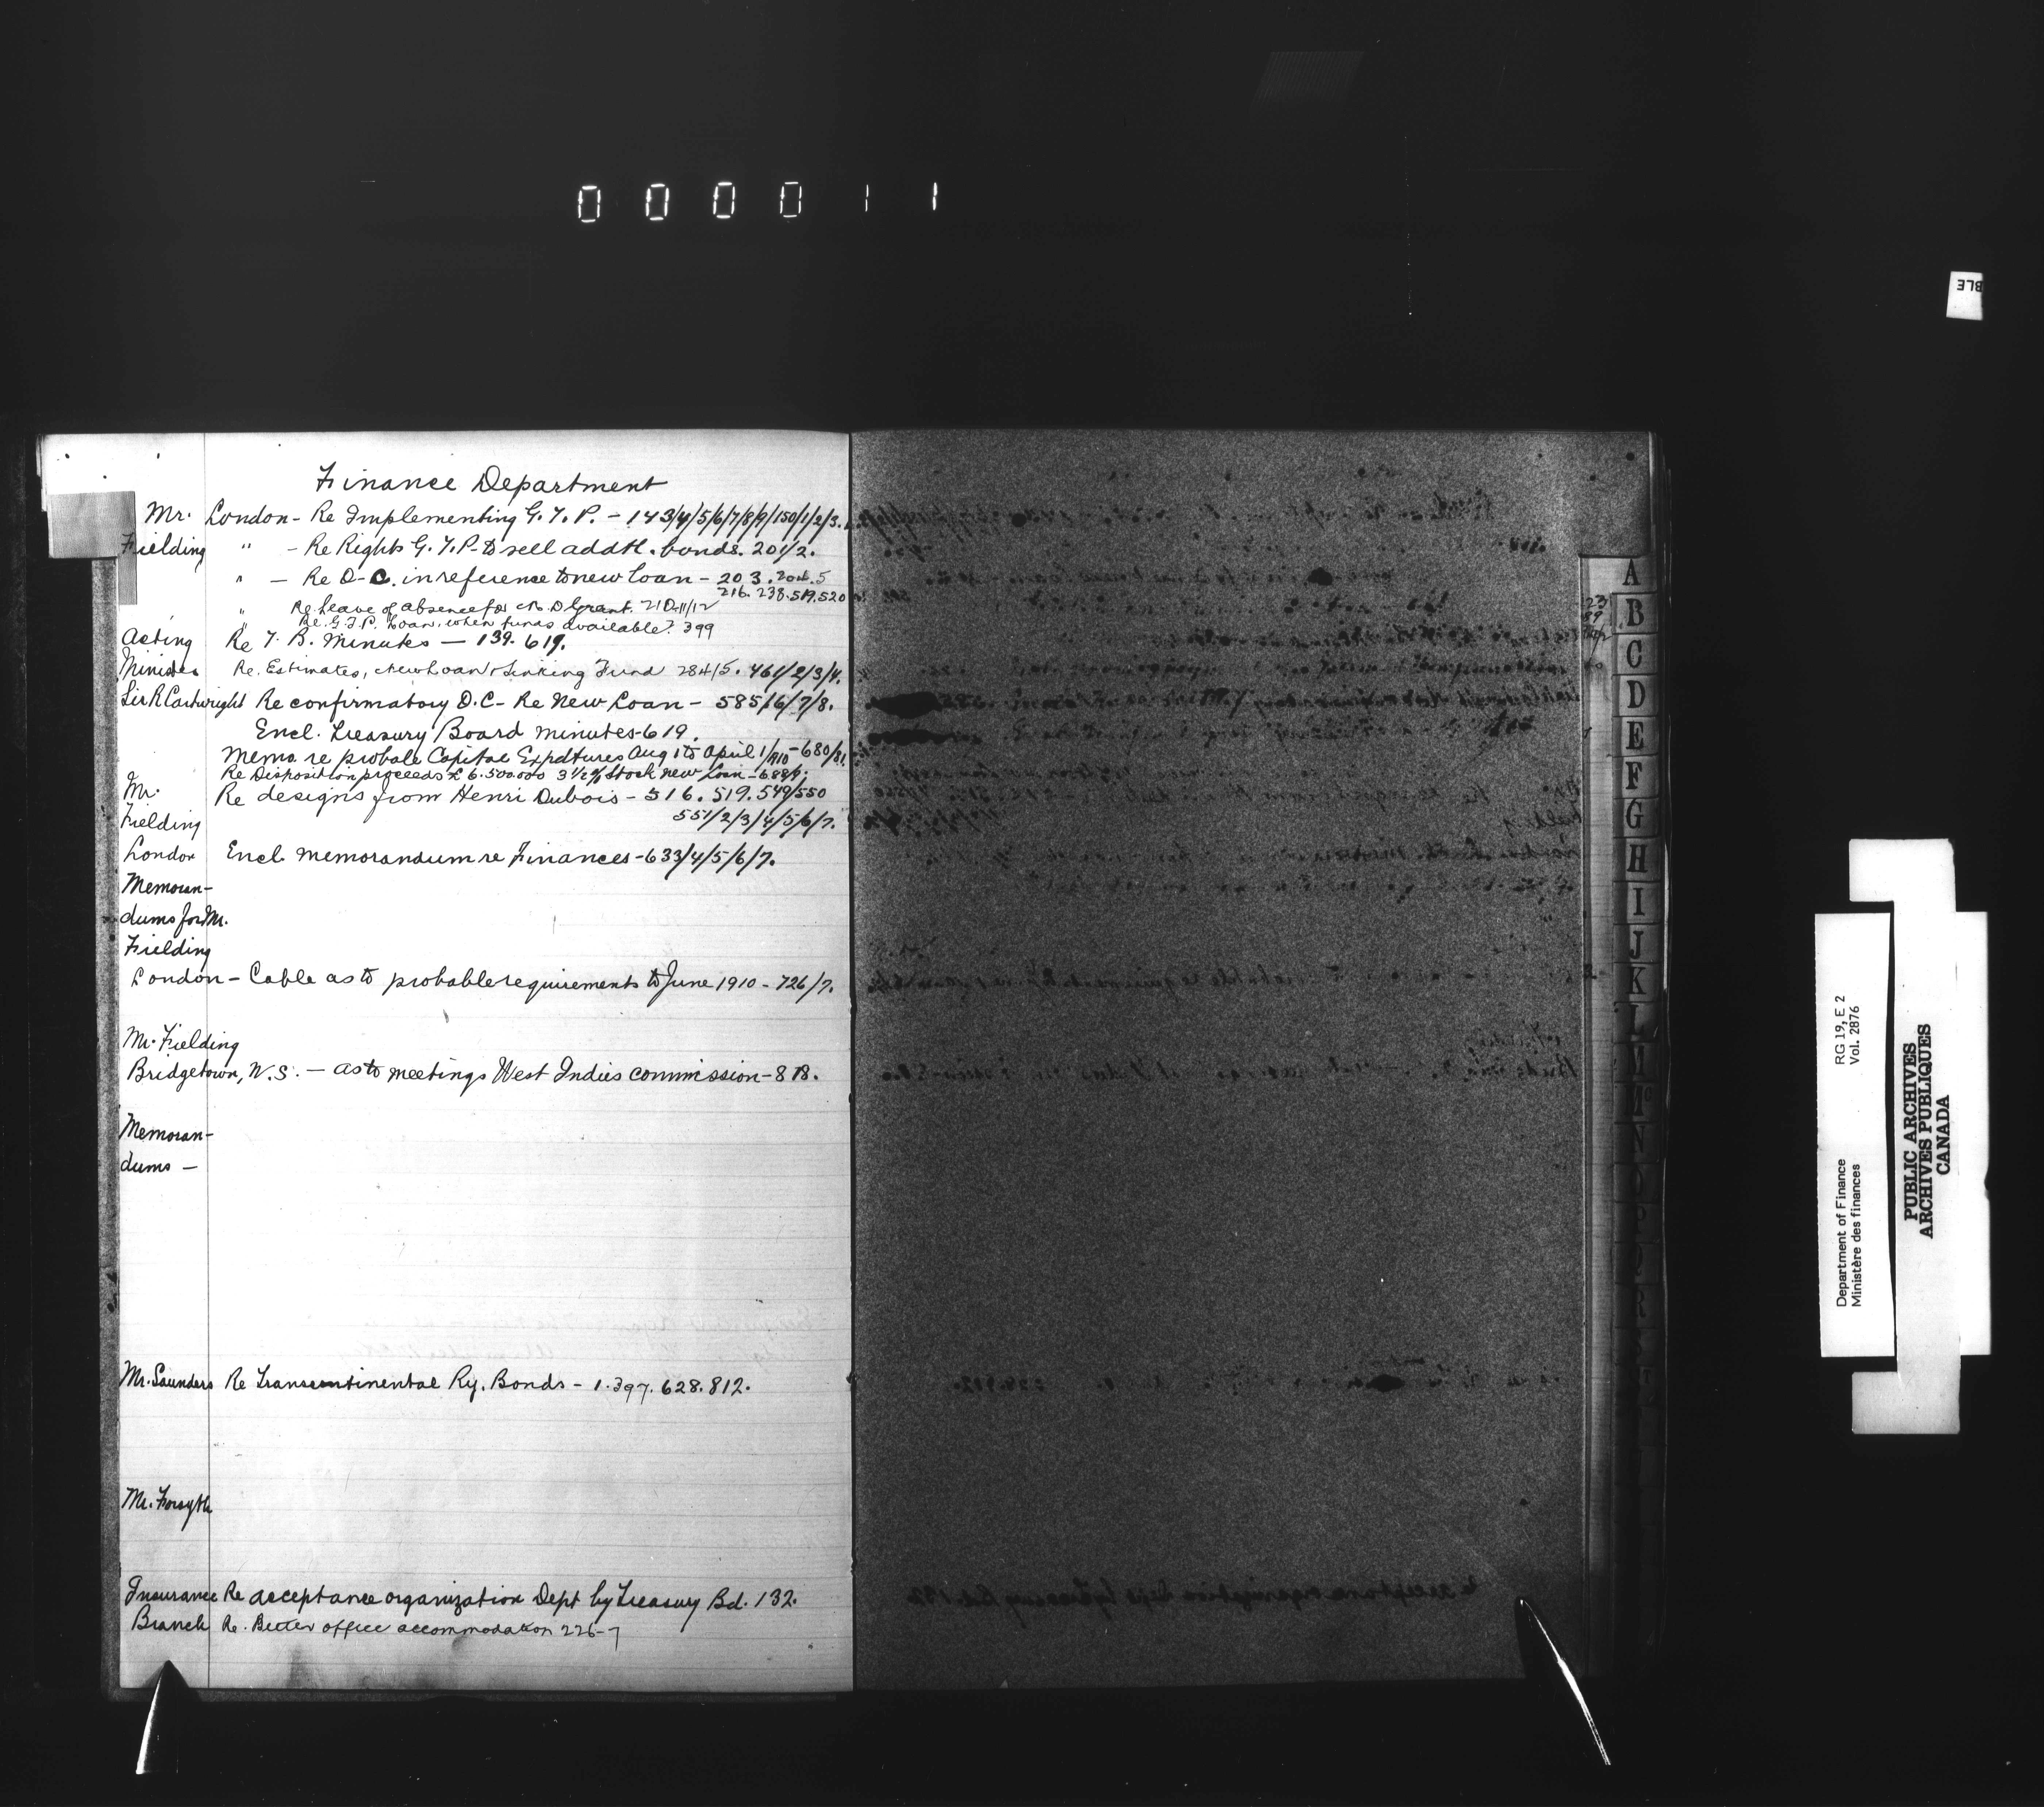 000011
Finance Department
Mr. London - Re Implementing G.T.P. - 143/4/5/6/7/8/9/150/1/2/3.
Fielding " - Re Rights G.T.P. to sell addtl. bonds. 201/2.
" - Re O-C. in reference to new Loan - 203. 204. 5
216. 238. 519. 520
" Re leave of absence for Grant. 210/11/12
" Re. G.T.P. Loan, when funds available? 399
Acting Re T. B. Minutes - 139. 619.
Minister Re. Estimates, New Loan & Sinking Fund 284/5. 461/2/3/4.
Sir R Cartwright Re confirmatory O.C - Re New Loan - 585/6/7/8.
Encl. Treasury Board minutes - 619.
Memo re probale Capital Expdtures Aug 1 to April 1/1910 - 680/81.
Re Disposition proceeds £6.500.000 3½% Stock new Loan - 688/9.
Mr. Re designs from Henri Dubois - 516. 519. 549/550
Fielding 551/2/3/4/5/6/7.
London Encl. memorandum re Finances - 633/4/5/6/7.
Memoran-
dums for Mr.
Fielding
London - Cable as to probable requirements to June 1910 - 726/7.
Mr. Fielding
Bridgetown, N.S. - as to meetings West Indies commission - 818.
Memoran-
dums -
Mr. Saunders Re Transcontinental Ry. Bonds - 1. 397. 628. 812.
Mr. Forsyth
Insurance Re acceptance organization Dept by Treasury Bd. 132.
Branch Re. Better office accommodation 226-7
A
B
C
D
E
F
G
H
I
J
K
L
M
Mc
N
O
P
Q
R
S
T
BLE
Department of Finance RG 19, E 2
Ministère des finances Vol. 2876
PUBLIC ARCHIVES
ARCHIVES PUBLIQUES
CANADA